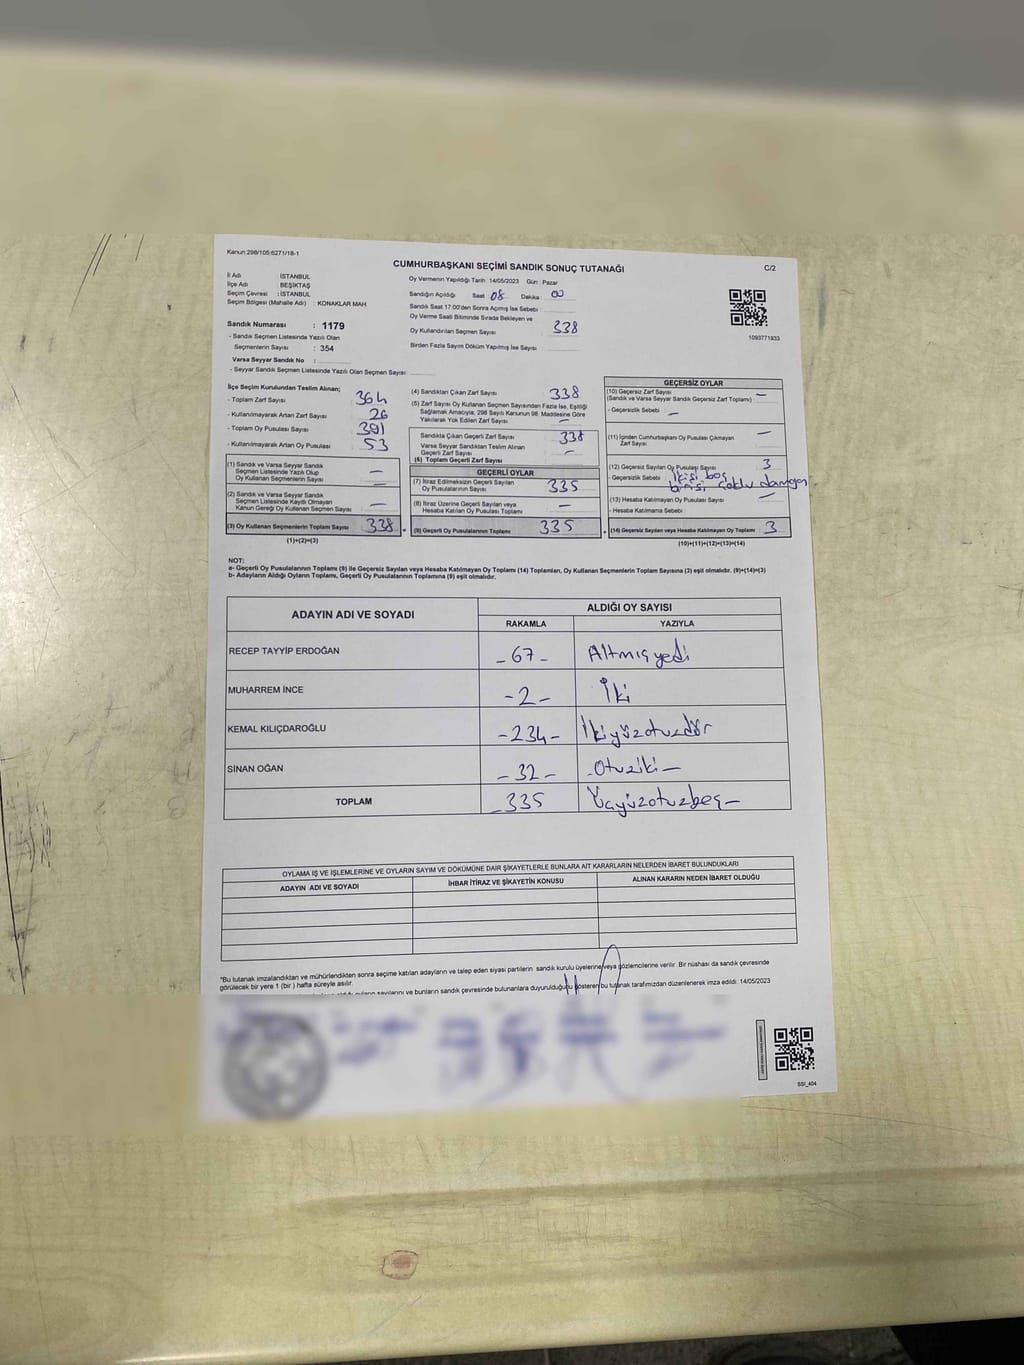 Kanun:298/105;6271/18-1
CUMHURBAŞKANI SEÇİMİ SANDIK SONUÇ TUTANAĞI
C/2
İl Adı : İSTANBUL
İlçe Adı : BEŞİKTAŞ
Seçim Çevresi : İSTANBUL
Seçim Bölgesi (Mahalle Adı) : KONAKLAR MAH.
Sandık Numarası : 1179
- Sandık Seçmen Listesinde Yazılı Olan
Seçmenlerin Sayısı : 354
Varsa Seyyar Sandık No :
- Seyyar Sandık Seçmen Listesinde Yazılı Olan Seçmen Sayısı :
Oy Vermenin Yapıldığı Tarih : 14/05/2023 Gün : Pazar
Sandığın Açıldığı Saat : 08 Dakika : 00
Sandık Saat 17.00'den Sonra Açılmış İse Sebebi :
Oy Verme Saati Bitiminde Sırada Bekleyen ve
Oy Kullandırılan Seçmen Sayısı : 338
Birden Fazla Sayım Döküm Yapılmış İse Sayısı :
1093771933
İlçe Seçim Kurulundan Teslim Alınan;
- Toplam Zarf Sayısı : 364
- Kullanılmayarak Artan Zarf Sayısı : 26
- Toplam Oy Pusulası Sayısı : 391
- Kullanılmayarak Artan Oy Pusulası : 53
(1) Sandık ve Varsa Seyyar Sandık
Seçmen Listesinde Yazılı Olup
Oy Kullanan Seçmenlerin Sayısı —
(2) Sandık ve Varsa Seyyar Sandık
Seçmen Listesinde Kayıtlı Olmayan
Kanun Gereği Oy Kullanan Seçmenlerin Sayısı —
(3) Oy Kullanan Seçmenlerin Toplam Sayısı 338
(1)+(2)=(3)
(4) Sandıktan Çıkan Zarf Sayısı 338
(5) Zarf Sayısı Oy Kullanan Seçmen Sayısından Fazla İse, Eşitliği
Sağlamak Amacıyla, 298 Sayılı Kanunun 98. Maddesine Göre
Yakılarak Yok Edilen Zarf Sayısı —
Sandıkta Çıkan Geçerli Zarf Sayısı 338
Varsa Seyyar Sandıktan Teslim Alınan
Geçerli Zarf Sayısı —
(6) Toplam Geçerli Zarf Sayısı
GEÇERLİ OYLAR
(7) İtiraz Edilmeksizin Geçerli Sayılan
Oy Pusulalarının Sayısı 335
(8) İtiraz Üzerine Geçerli Sayılan veya
Hesaba Katılan Oy Pusulası Toplamı —
(9) Geçerli Oy Pusulalarının Toplamı 335
GEÇERSİZ OYLAR
(10) Geçersiz Zarf Sayısı
(Sandık ve Varsa Seyyar Sandık Geçersiz Zarf Toplamı) —
- Geçersizlik Sebebi : —
(11) İçinden Cumhurbaşkanı Oy Pusulası Çıkmayan
Zarf Sayısı —
(12) Geçersiz Sayılan Oy Pusulası Sayısı 3
- Geçersizlik Sebebi : İkisi boş
birisi çoklu damga
(13) Hesaba Katılmayan Oy Pusulası Sayısı —
- Hesaba Katılmama Sebebi
(14) Geçersiz Sayılan veya Hesaba Katılmayan Oy Toplamı 3
(10)+(11)+(12)+(13)=(14)
NOT:
a- Geçerli Oy Pusulalarının Toplamı (9) ile Geçersiz Sayılan veya Hesaba Katılmayan Oy Toplamı (14) Toplamları, Oy Kullanan Seçmenlerin Toplam Sayısına (3) eşit olmalıdır. (9)+(14)=(3)
b- Adayların Aldığı Oyların Toplamı, Geçerli Oy Pusulalarının Toplamına (9) eşit olmalıdır.
ADAYIN ADI VE SOYADI
ALDIĞI OY SAYISI
RAKAMLA YAZIYLA
RECEP TAYYİP ERDOĞAN -67- Altmışyedi
MUHARREM İNCE -2- İki
KEMAL KILIÇDAROĞLU -234- İkiyüzotuzdör
SİNAN OĞAN -32- -Otuziki-
TOPLAM -335 Üçyüzotuzbeş-
OYLAMA İŞ VE İŞLEMLERİNE VE OYLARIN SAYIM VE DÖKÜMÜNE DAİR ŞİKAYETLERLE BUNLARA AİT KARARLARIN NELERDEN İBARET BULUNDUKLARI
ADAYIN ADI VE SOYADI İHBAR İTİRAZ VE ŞİKAYETİN KONUSU ALINAN KARARIN NEDEN İBARET OLDUĞU
*Bu tutanak imzalandıktan ve mühürlendikten sonra seçime katılan adayların ve talep eden siyasi partilerin sandık kurulu üyelerine veya gözlemcilerine verilir. Bir nüshası da sandık çevresinde
görülecek bir yere 1 (bir) hafta süreyle asılır.
sayılarını ve bunların sandık çevresinde bulunanlara duyurulduğunu gösteren bu tutanak tarafımızdan düzenlenerek imza edildi. 14/05/2023
SSİ_404